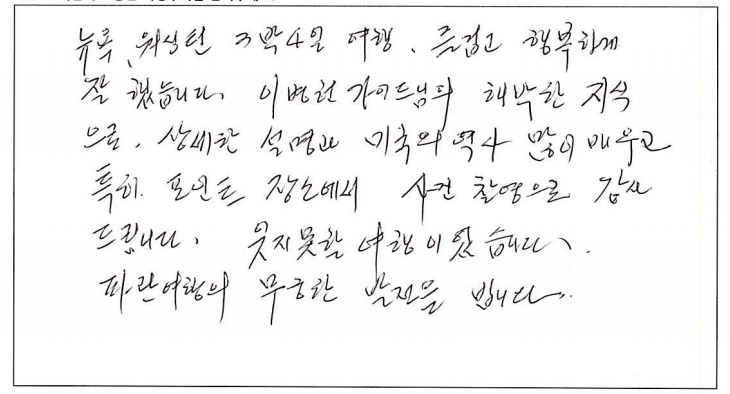 뉴욕, 워싱턴 3박4일 여행, 즐겁고 행복하게
잘 했습니다. 이병헌 가이드님의 해박한 지식
으로, 상세한 설명과 미국의 역사 많이 배우고
특히 포인트 장소에서 사진 촬영으로 감사
드립니다. 잊지못할 여행이었습니다.
파란여행의 무궁한 발전을 빕니다.